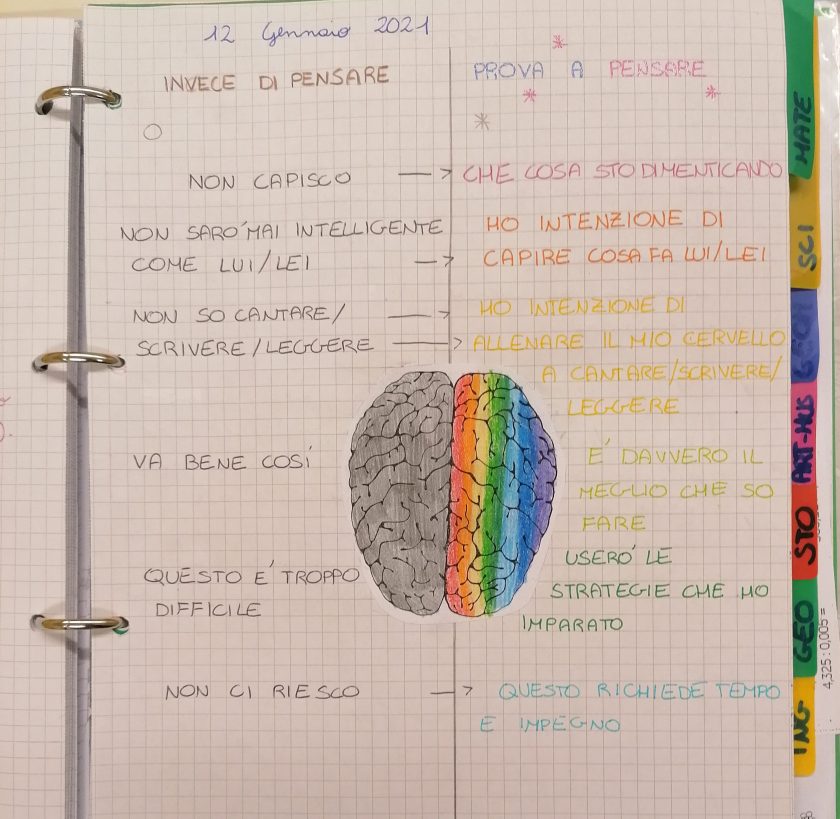 12 Gennaio 2021
INVECE DI PENSARE
PROVA A PENSARE
NON CAPISCO → CHE COSA STO DIMENTICANDO
NON SARO' MAI INTELLIGENTE
COME LUI/LEI →
HO INTENZIONE DI
CAPIRE COSA FA LUI/LEI
NON SO CANTARE/ →
SCRIVERE/LEGGERE →
HO INTENZIONE DI
ALLENARE IL MIO CERVELLO
A CANTARE/SCRIVERE/
LEGGERE
VA BENE COSÍ
E' DAVVERO IL
MEGLIO CHE SO
FARE
QUESTO E' TROPPO
DIFFICILE
USERO' LE
STRATEGIE CHE HO
IMPARATO
NON CI RIESCO →
QUESTO RICHIEDE TEMPO
E IMPEGNO
MATE
SCI
ART-MUS
STO
GEO
ING
4,325:0,005=